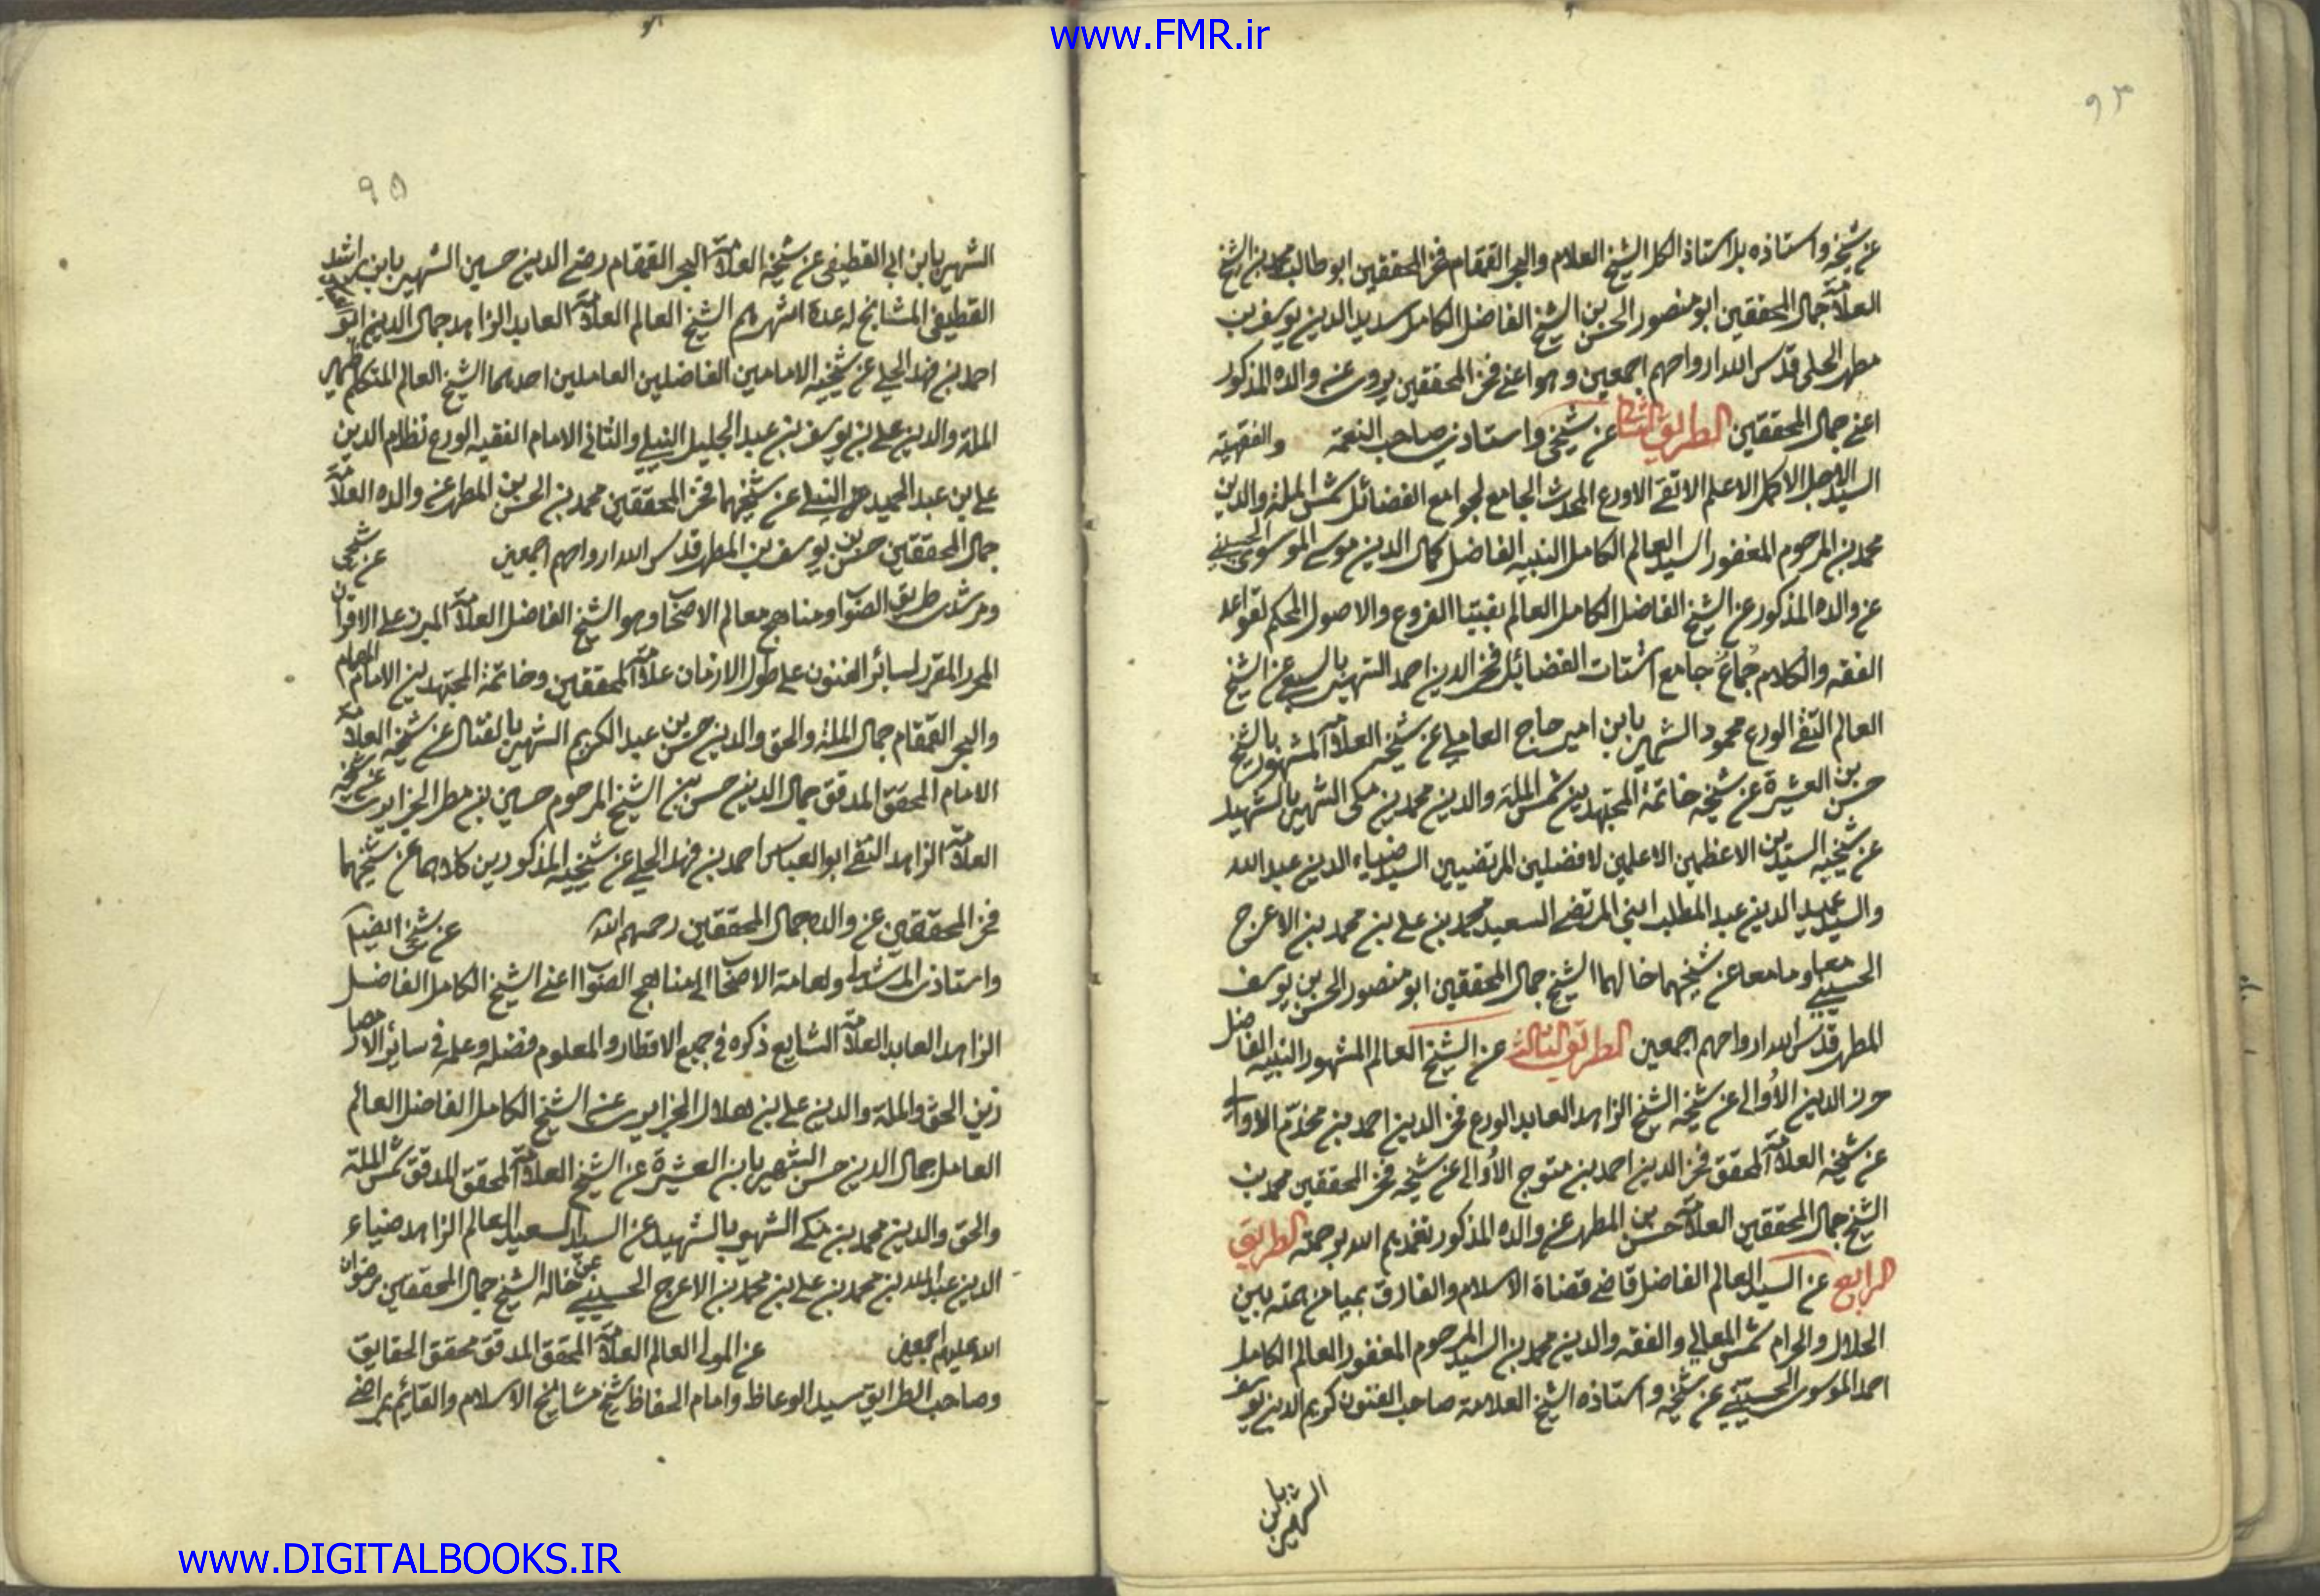 www.FMR.ir
٩٣
عن شيخه واستاذه بل استاذ الكل الشيخ العلام والبحر القمقام فخر المحققين ابو طالب محمد بن الشيخ
العلامة جمال المحققين ابو منصور الحسن بن الشيخ الفاضل الكامل سديد الدين يوسف بن
مطهر الحلى قدس الله ارواحهم اجمعين وهو اعنى فخر المحققين يروى عن والده المذكور
اعنى جمال المحققين الطريق الثانى عن شيخى واستاذى صاحب النعمة والفقهية
السيد الاجل الاكمل الاعلم الاتقى الاورع المحدث الجامع لجوامع الفضائل شمس الملة والدين
محمد بن المرحوم المغفور السيد العالم الكامل النبيه الفاضل كمال الدين موسى الموسوى الحسينى
عن والده المذكور عن الشيخ الفاضل الكامل العالم بفتيا الفروع والاصول المحكم لقواعد
الفقه والكلام جُماعُ جامع اشتات الفضائل فخر الدين احمد الشهير بالسبعى عن الشيخ
العالم التقى الورع محمود الشهير بابن امير حاج العاملى عن شيخه العلامة المشهور بالشيخ
حسن بن العشرة عن شيخه خاتمة المجتهدين شمس الملة والدين محمد بن مكى الشهير بالشهيد
عن شيخيه السيدين الاعظمين الاعلمين الافضلين المرتضيين السيد ضياء الدين عبد الله
والسيد عميد الدين عبد المطلب ابنى المرتضى السعيد محمد بن على بن محمد بن الاعرج
الحسينى معا وهما معا عن شيخهما خالهما الشيخ جمال المحققين ابو منصور الحسن بن يوسف
المطهر قدس الله ارواحهم اجمعين الطريق الثالث عن الشيخ العالم المشهور النبيه الفاضل
حرز الدين الأوالى عن شيخه الشيخ الزاهد العابد الورع فخر الدين احمد بن مخدّم الاوالى
عن شيخه العلامة المحقق فخر الدين احمد بن متوج الأوالى عن شيخه فخر المحققين محمد بن
الشيخ جمال المحققين العلامة حسن بن المطهر عن والده المذكور تغمدهم الله برحمته الطريق
الرابع عن السيد العالم الفاضل قاضى قضاة الاسلام والفارق بميامن همته بين
الحلال والحرام شمس المعالى والفقه والدين محمد بن السيد المرحوم المغفور العالم الكامل
احمد الموسوى الحسينى عن شيخه واستاذه الشيخ العلامة صاحب الفنون كريم الدين يوسف
الشهير بابن
٩٥
الشهير بابن ابى القطيفى عن شيخه العلامة البحر القمقام رضى الدين حسين الشهير بابن راشد
القطيفى المشايخ له عدة اشهرهم الشيخ العالم العلامة العابد الزاهد جمال الدين ابو العباس
احمد بن فهد الحلى عن شيخيه الامامين الفاضلين العاملين احدهما الشيخ العالم المتكلم ظهير
الملة والدين على بن يوسف بن عبد الجليل النيلى والثانى الامام الفقيه الورع نظام الدين
على بن عبد الحميد النيلى عن شيخهما فخر المحققين محمد بن الحسن بن المطهر عن والده العلامة
جمال المحققين حسن بن يوسف بن المطهر قدس الله ارواحهم اجمعين عن شيخى
ومرشدى طريق الصواب ومناهج معالم الاصحاب وهو الشيخ الفاضل العلامة المبرز على الاقران
المحرر المقرر لسائر الفنون على طول الازمان علامة المحققين وخاتمة المجتهدين الامام الهمام
والبحر القمقام جمال الملة والحق والدين حسن بن عبد الكريم الشهير بالفتال عن شيخه العلامة
الامام المحقق المدقق جمال الدين حسن بن الشيخ المرحوم حسين بن مطر الجزايرى عن شيخه
العلامة الزاهد التقى ابو العباس احمد بن فهد الحلى عن شيخيه المذكورين كلاهما عن شيخهما
فخر المحققين عن والده جمال المحققين رحمهم الله عن شيخى ايضا
واستاذى المرشد لى ولعامة الاصحاب الى مناهج الصواب اعنى الشيخ الكامل الفاضل
الزاهد العابد العلامة الشايع ذكره فى جميع الاقطار والمعلوم فضله وعلمه فى سائر الامصار
زين الحق والملة والدين على بن هلال الجزايرى عن الشيخ الكامل الفاضل العالم
العامل جمال الدين حسن الشهير بابن العشرة عن الشيخ العلامة المحقق المدقق شمس الملة
والحق والدين محمد بن مكى الشهير بالشهيد عن السيد السعيد العالم الزاهد ضياء
الدين عبد الله بن محمد بن على بن محمد بن الاعرج الحسينى عن خاله الشيخ جمال المحققين رضوان
الله عليهم اجمعين عن المولى العالم العلامة المحقق المدقق محقق الحقايق
وصاحب الطرايق سيد الوعاظ وامام الحفاظ شيخ مشايخ الاسلام والقايم بمراضى
www.DIGITALBOOKS.IR